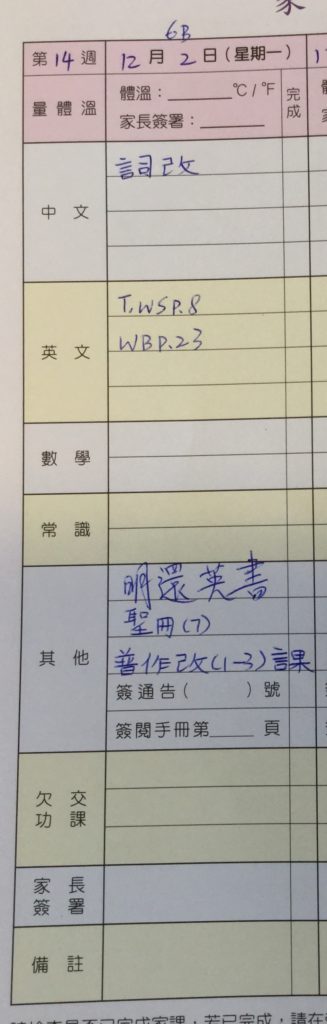 家
6B
第14週 12月2日(星期一)
量體溫 體溫：______℃/℉ 完成
家長簽署：______
中文 詞改
英文 T.WSP.8
WBP.23
數學
常識
其他 明還英書
聖冊(7)
普作改(1-3)課
簽通告( )號
簽閱手冊第____頁
欠交功課
家長簽署
備註